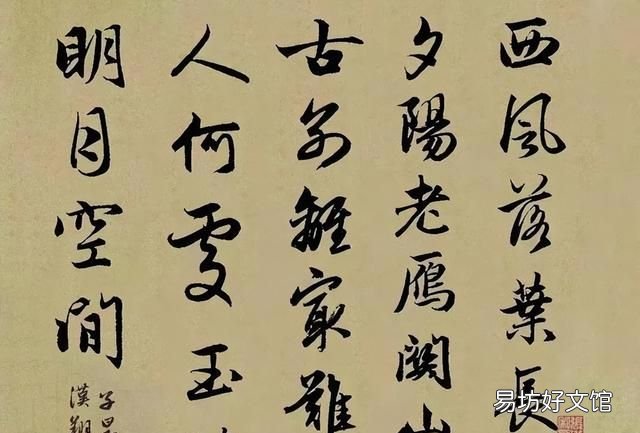 西风落葉長
夕陽老雁関山
古别離寂難
人何處玉
明月空间
子昂
漢翔
易坊好文馆